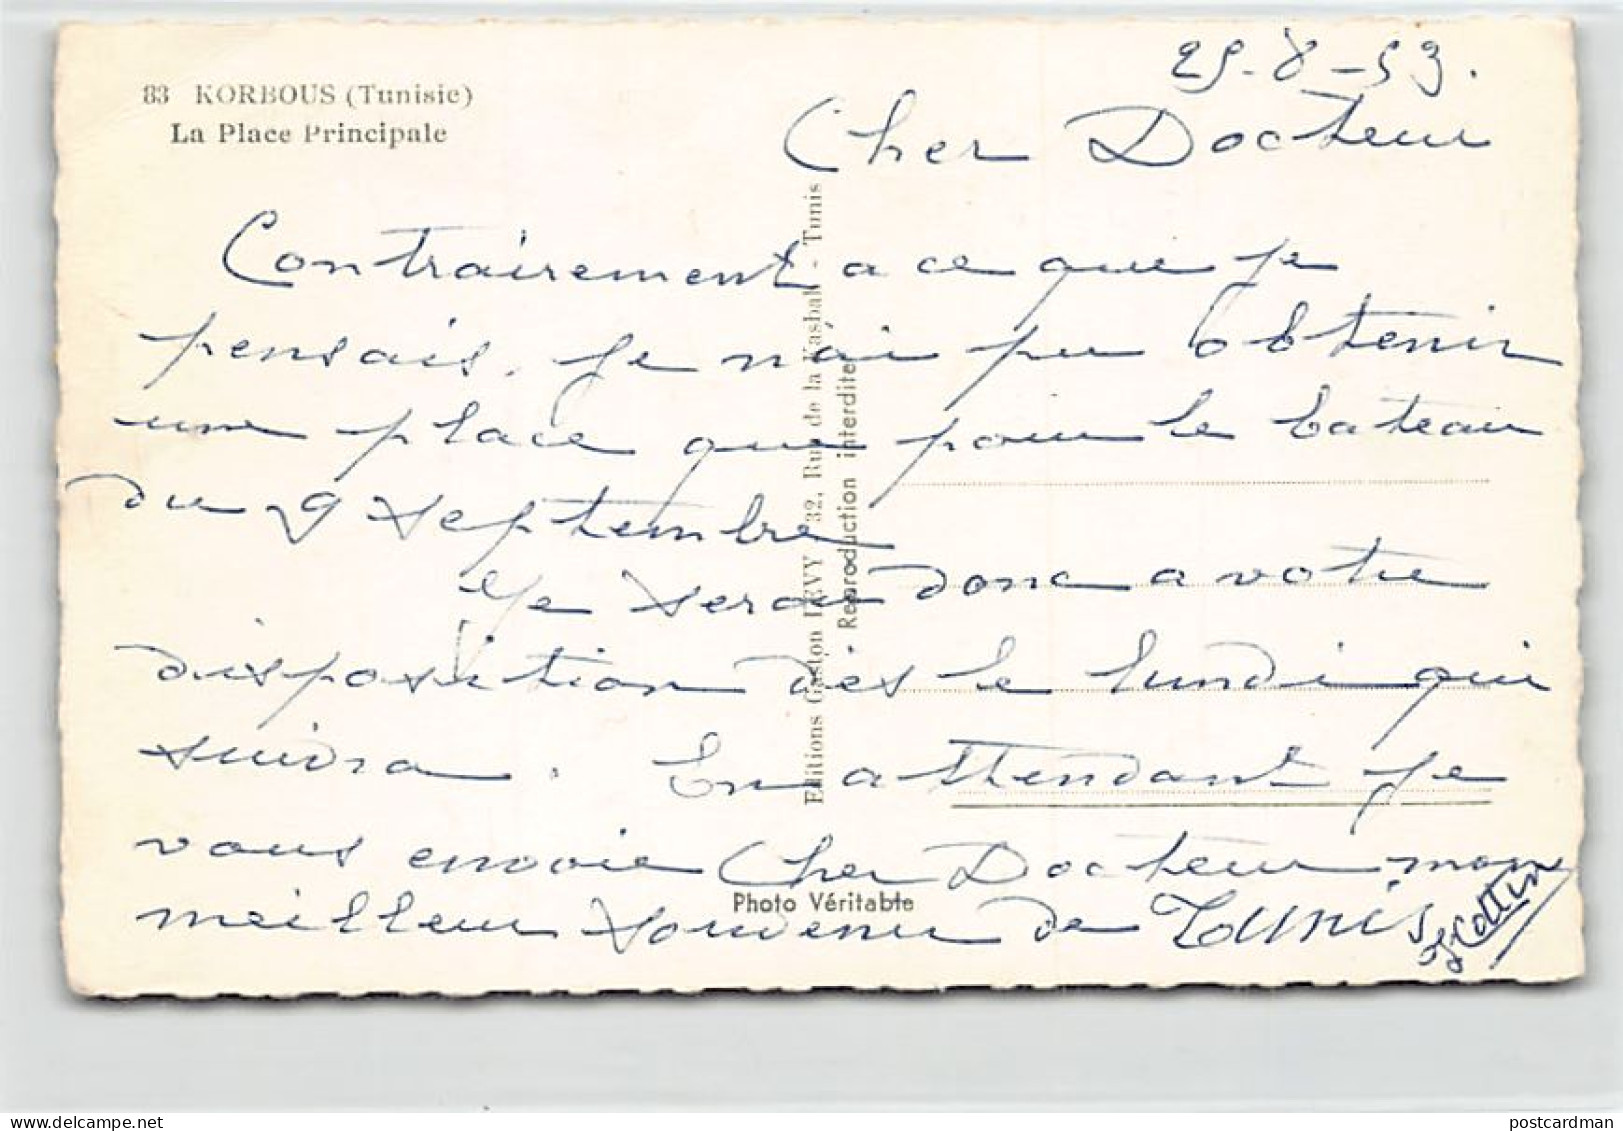 83 KORBOUS (Tunisie)
La Place Principale
25-8-53.
Cher Docteur
Contrairement a ce que je
pensais, je n'ai pu obtenir
une place que pour le bateau
du 9 septembre
Je serai donc a votre
disposition dès le lundi qui
suivra. En attendant je
vous envoie Cher Docteur mon
meilleur souvenir de Tunis
Cottin
Editions Gaston LEVY - 32, Rue de la Kasbah - Tunis
Reproduction interdite
Photo Véritable
delcampe.net
postcardman